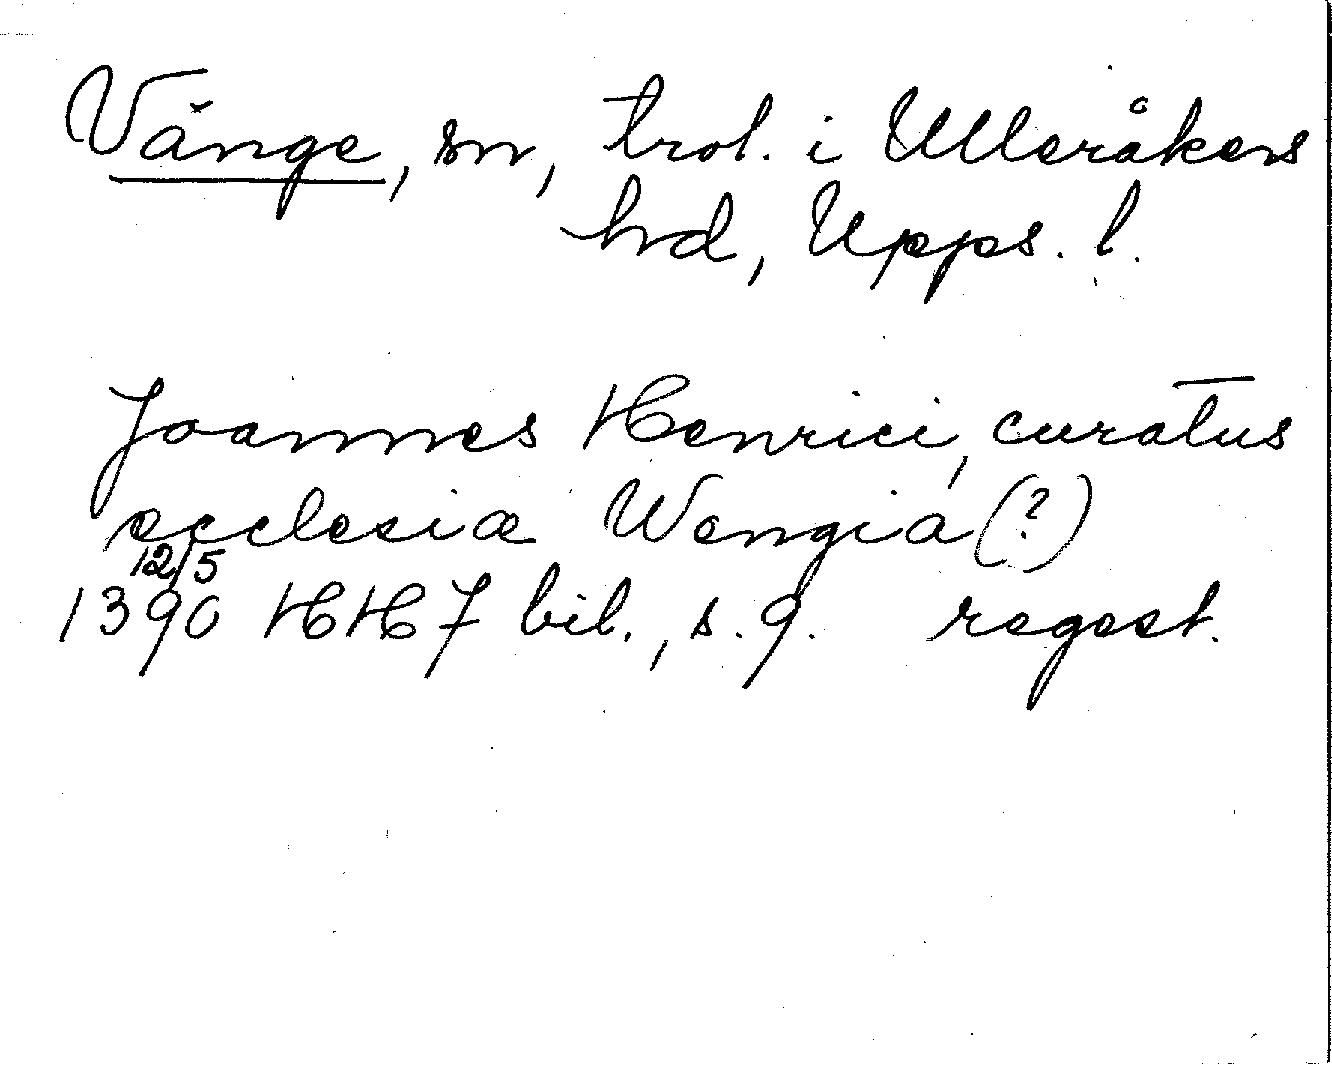 Vänge, sn, trol. i Ulleråkers
hd, Upps. l.
Joannes Henrici, curatus
ecclesiæ Wengia (?)
12/5
1390 HH 7 bil., s. 9. regest.